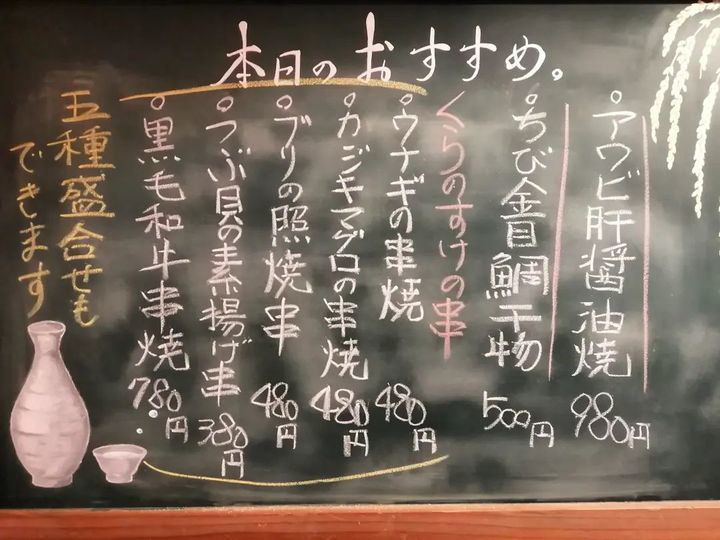 本日のおすすめ。
○アワビ肝醤油焼 980円
○ちび金目鯛干物 500円
くらのすけの串
○ウナギの串焼 480円
○カジキマグロの串焼 480円
○ブリの照焼串 480円
○つぶ貝の素揚げ串 380円
○黒毛和牛串焼 780円
五種盛合せも
できます